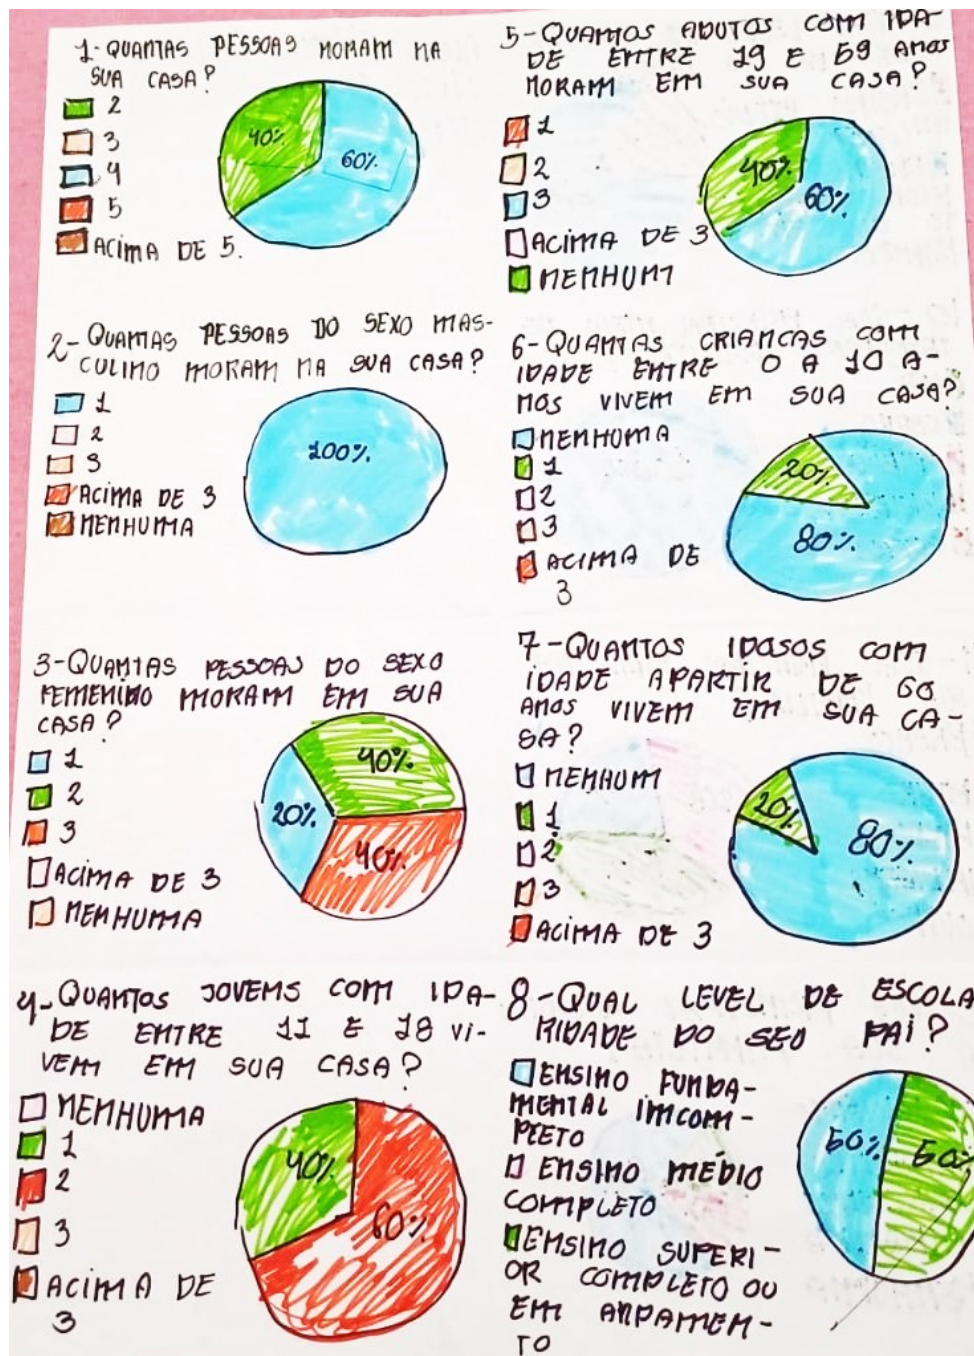 1-QUANTAS PESSOAS MORAM NA
SUA CASA?
2
3
4
5
ACIMA DE 5.
40%
60%
2-QUANTAS PESSOAS DO SEXO MAS-
CULINO MORAM NA SUA CASA?
1
2
3
ACIMA DE 3
NENHUMA
100%
3-QUANTAS PESSOAS DO SEXO
FEMENINO MORAM EM SUA
CASA?
1
2
3
ACIMA DE 3
NENHUMA
40%
20%
40%
4-QUANTOS JOVENS COM IDA-
DE ENTRE 11 E 18 VI-
VEM EM SUA CASA?
NENHUMA
1
2
3
ACIMA DE
3
40%
60%
5-QUANTOS ADUTOS COM IDA-
DE ENTRE 19 E 59 ANOS
MORAM EM SUA CASA?
1
2
3
ACIMA DE 3
NENHUM
40%
60%
6-QUANTAS CRIANCAS COM
IDADE ENTRE 0 A 10 A-
NOS VIVEM EM SUA CASA?
NENHUMA
1
2
3
ACIMA DE
3
20%
80%
7-QUANTOS IDOSOS COM
IDADE APARTIR DE 60
ANOS VIVEM EM SUA CA-
SA?
NENHUM
1
2
3
ACIMA DE 3
20%
80%
8-QUAL LEVEL DE ESCOLA
RIDADE DO SEU PAI?
ENSINO FUNDA-
MENTAL IMCOM-
PLETO
ENSINO MÉDIO
COMPLETO
ENSINO SUPERI-
OR COMPLETO OU
EM ANDAMEN-
TO
50%
50%